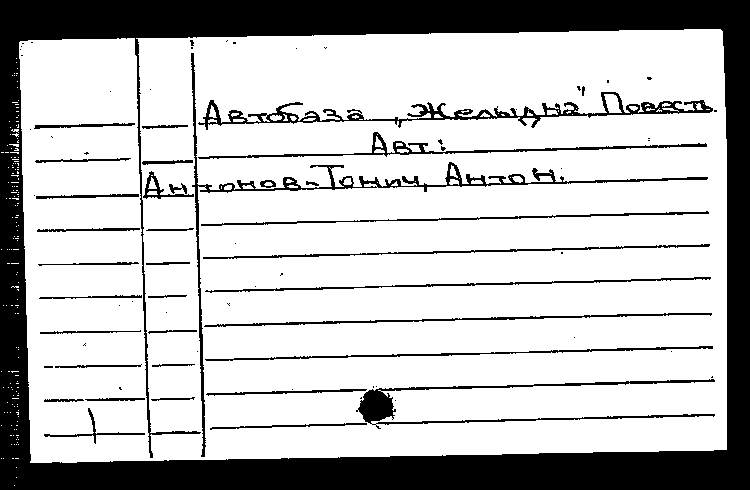 Автобаза „Желыдна". Повесть
Авт.:
Антонов-Тонич, Антон.